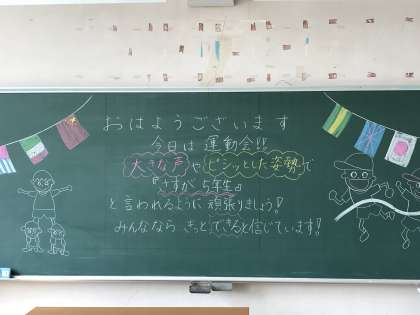 おはようございます
今日は運動会!!
大きな声やビシッとした姿勢で
『さすが5年生』
と言われるように頑張りましょう!
みんなならきっとできると信じています!